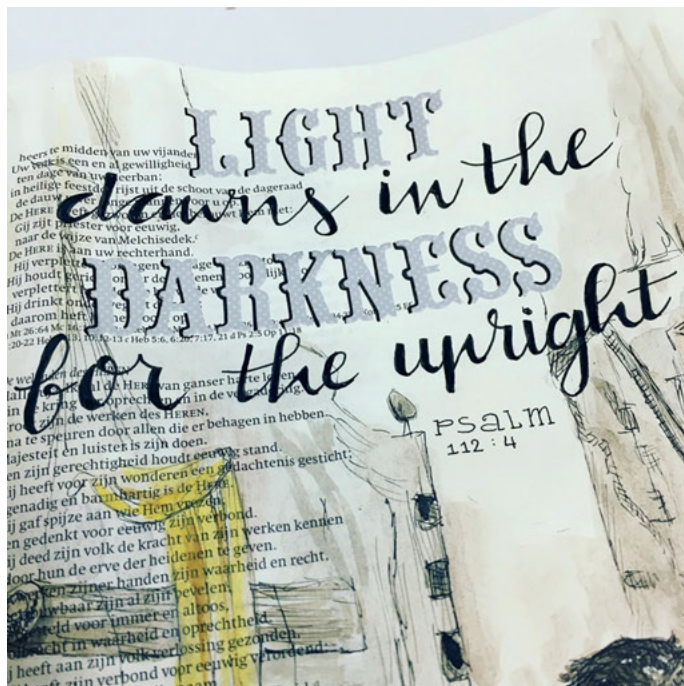 LIGHT
dawns in the
DARKNESS
for the upright
PSALM
112:4
heers te midden van uw vijanden
Uw volk is een en al gewilligheid
ten dage van uw heerban;
in heilige feestdos rijst uit de schoot van de dageraad
de dauw
De HERE heeft gezworen en het berouwt Hem niet:
Gij zijt priester voor eeuwig,
naar de wijze van Melchisedek.
De HERE is aan uw rechterhand.
Hij
Hij houdt
verplettert
Hij drinkt
daarom heft
Mt 26:64
:20-22 Heb 5:6, 6:20, 7:17, 21 d Ps 2:5 Op
al de HERE van ganser harte loven
in de kring oprechten in de vergadering.
zijn de werken des HEREN,
na te speuren door allen die er behagen in hebben.
ajesteit en luister is zijn doen.
en zijn gerechtigheid houdt eeuwig stand.
ij heeft voor zijn wonderen een gedachtenis gesticht;
genadig en barmhartig is de HERE
ij gaf spijze aan wie Hem vrezen,
en gedenkt voor eeuwig zijn verbond.
ij deed zijn volk de kracht van zijn werken kennen
door hun de erve der heidenen te geven.
werken zijner handen zijn waarheid en recht.
uwbaar zijn al zijn bevelen,
voor immer en altoos,
in waarheid en oprechtheid.
heeft aan zijn volk verlossing gezonden,
zijn verbond voor eeuwig verordend;